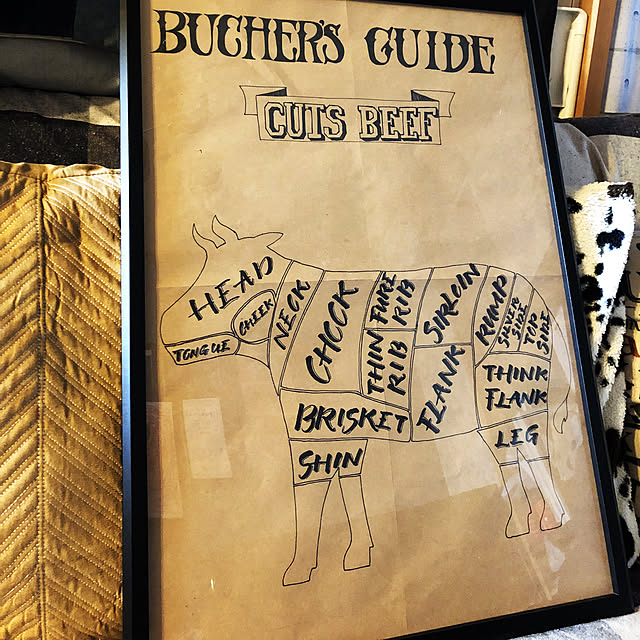 BUCHER'S GUIDE
CUTS BEEF
HEAD
CHEEK
TONGUE
NECK
CHOCK
FORE
RIB
THIN
RIB
SIRLOIN
FLANK
RUMP
SILVER
SIDE
TOP
SIDE
THINK
FLANK
BRISKET
LEG
SHIN